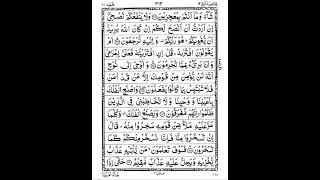 شَآءَ وَمَآ اَنْتُمْ بِمُعْجِزِيْنَ ۝ وَلَا يَنْفَعُكُمْ نُصْحِيْٓ
اِنْ اَرَدْتُّ اَنْ اَنْصَحَ لَكُمْ اِنْ كَانَ اللّٰهُ يُرِيْدُ
اَنْ يُّغْوِيَكُمْ هُوَ رَبُّكُمْ وَاِلَيْهِ تُرْجَعُوْنَ ۝ اَمْ
يَقُوْلُوْنَ افْتَرٰىهُ قُلْ اِنِ افْتَرَيْتُهٗ فَعَلَيَّ اِجْرَامِيْ
وَاَنَا بَرِيْٓءٌ مِّمَّا تُجْرِمُوْنَ ۝ وَاُوْحِيَ اِلٰى نُوْحٍ
اَنَّهٗ لَنْ يُّؤْمِنَ مِنْ قَوْمِكَ اِلَّا مَنْ قَدْ اٰمَنَ
فَلَا تَبْتَئِسْ بِمَا كَانُوْا يَفْعَلُوْنَ ۝ وَاصْنَعِ الْفُلْكَ
بِاَعْيُنِنَا وَوَحْيِنَا وَلَا تُخَاطِبْنِيْ فِي الَّذِيْنَ
ظَلَمُوْا اِنَّهُمْ مُّغْرَقُوْنَ ۝ وَيَصْنَعُ الْفُلْكَ وَكُلَّمَا
مَرَّ عَلَيْهِ مَلَاٌ مِّنْ قَوْمِهٖ سَخِرُوْا مِنْهُ قَالَ
اِنْ تَسْخَرُوْا مِنَّا فَاِنَّا نَسْخَرُ مِنْكُمْ كَمَا
تَسْخَرُوْنَ ۝ فَسَوْفَ تَعْلَمُوْنَ مَنْ يَّاْتِيْهِ عَذَابٌ
يُّخْزِيْهِ وَيَحِلُّ عَلَيْهِ عَذَابٌ مُّقِيْمٌ ۝ حَتّٰىٓ اِذَا